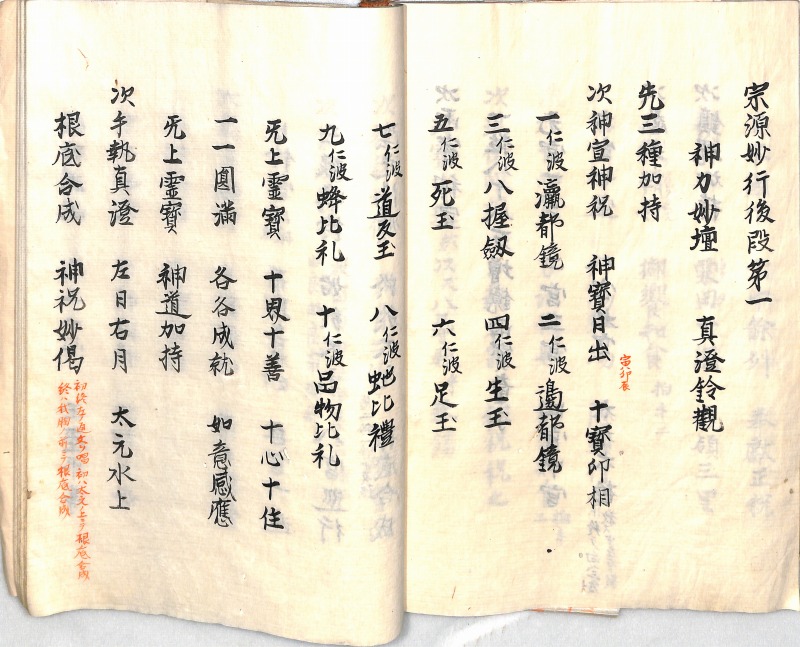 宗源妙行後段第一
神力妙壇　真澄鈴觀
先三種加持
次神宣神祝　神寶日出　十寶印相
寅卯辰
一仁波瀛都鏡　二仁波邊都鏡
三仁波八握劔　四仁波生玉
五仁波死玉　六仁波足玉
七仁波道反玉　八仁波虵比禮
九仁波蜂比礼　十仁波品物比礼
旡上靈寶　十界十善　十心十住
一一圓滿　各各成就　如意感應
旡上靈寶　神道加持
次手執真澄　左日右月　太元水上
根底合成　神祝妙偈
根底合成
根底合成